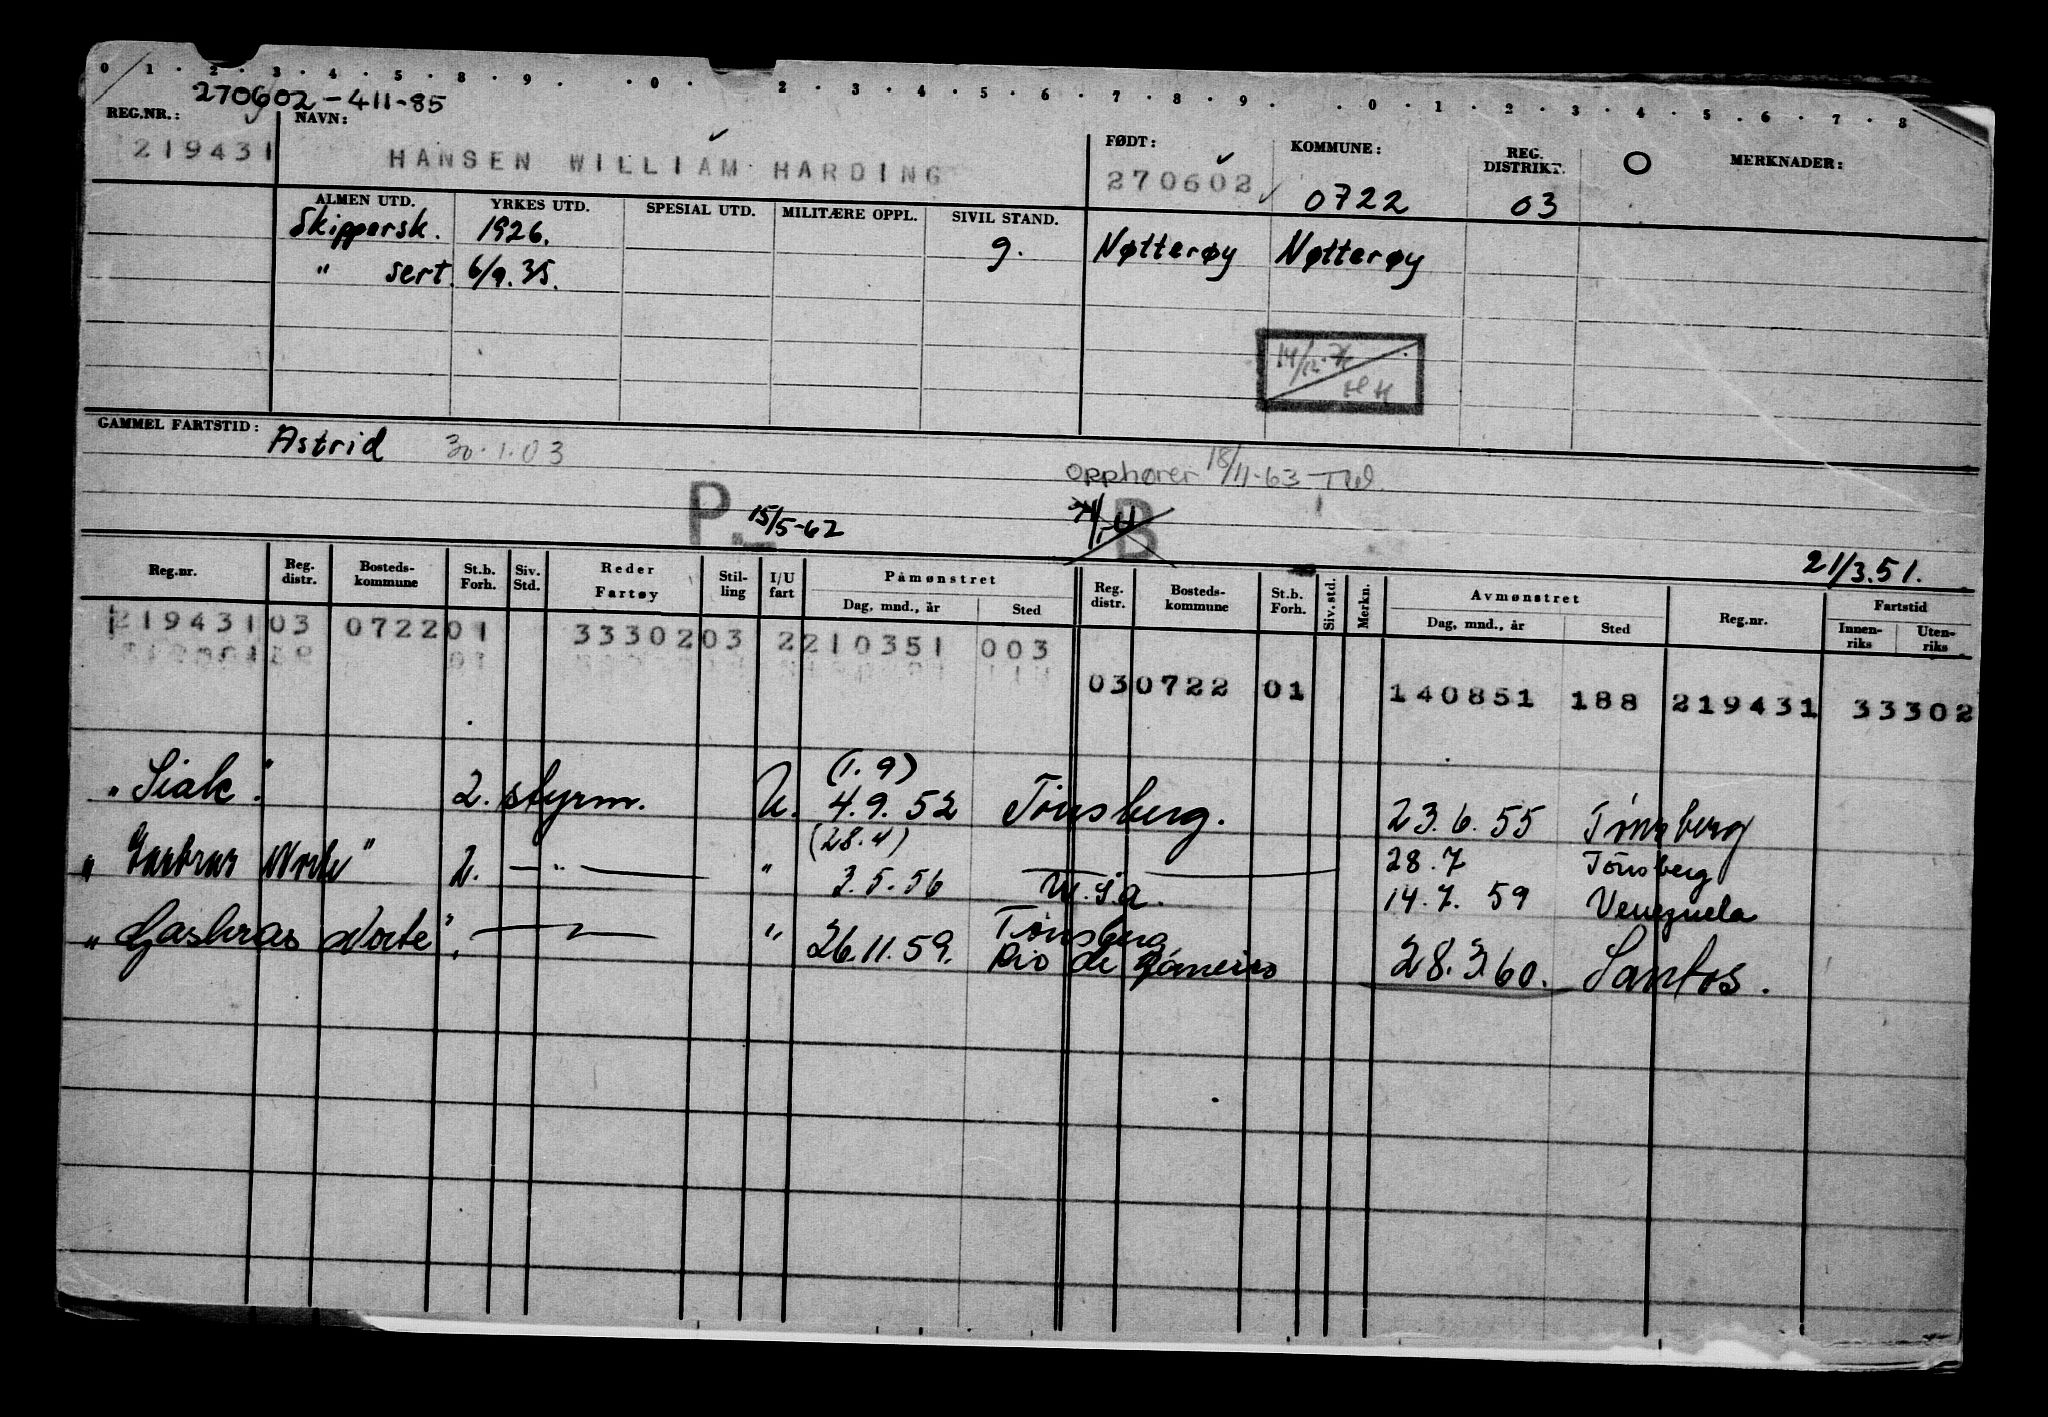 0 1 2 3 4 5 8 9 0 2 3 4 5 6 7 8 9 0 1 2 3 4 5 6 7 8
270602-411-85
REG.NR.: NAVN: FØDT: KOMMUNE: REG. DISTRIKT. MERKNADER:
219431 HANSEN WILLIAM HARDING 270602 0722 03
ALMEN UTD. YRKES UTD. SPESIAL UTD. MILITÆRE OPPL. SIVIL STAND.
Skippersk. 1926. g. Nøtterøy Nøtterøy
" sert. 6/9.35.
GAMMEL FARTSTID: Astrid 30.1.03
Opphører 18/11-63
P 15/5-62 B
21/3.51.
Reg.nr. Reg. distr. Bosteds-kommune St.b. Forh. Siv. Std. Reder Fartøy Stil-ling I/U fart Påmønstret Dag, mnd., år Sted Reg. distr. Bosteds-kommune St.b. Forh. Siv. std. Merkn. Avmønstret Dag, mnd., år Sted Reg.nr. Fartstid Innen-riks Uten-riks
219431 03 0722 01 33302 03 2 210351 003
03 0722 01 140851 188 219431 33302
(1.9)
"Siak". 2. styrm. U. 4.9.52 Tönsberg. 23.6.55 Tönsberg
(28.4) 28.7 Tönsberg
" Norte" 2. — " — " 3.5.56 U.S.a. 14.7.59 Venezuela
Tönsberg
"Gasbras Norte". — " — " 26.11.59. Rio de Janeiro 28.3.60. Santos.